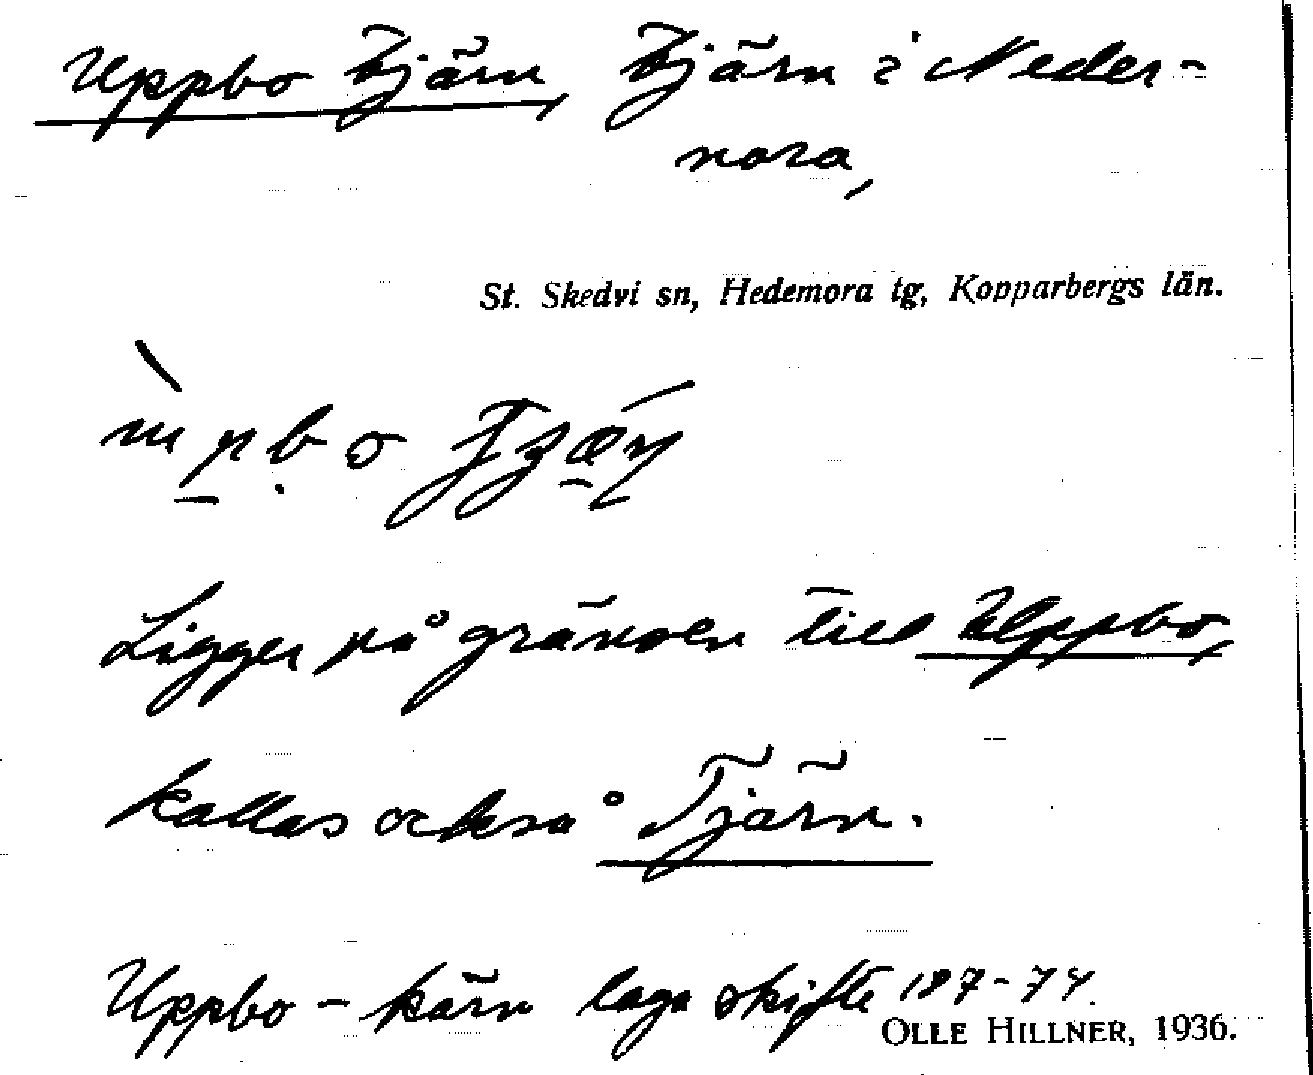 Uppbo tjärn, tjärn i Neder-
nora,
St. Skedvi sn, Hedemora tg, Kopparbergs län.
Ligger på gränsen till Uppbo,
kallas också Tjärn.
Uppbo-kärn laga skifte 187-74.
OLLE HILLNER, 1936.